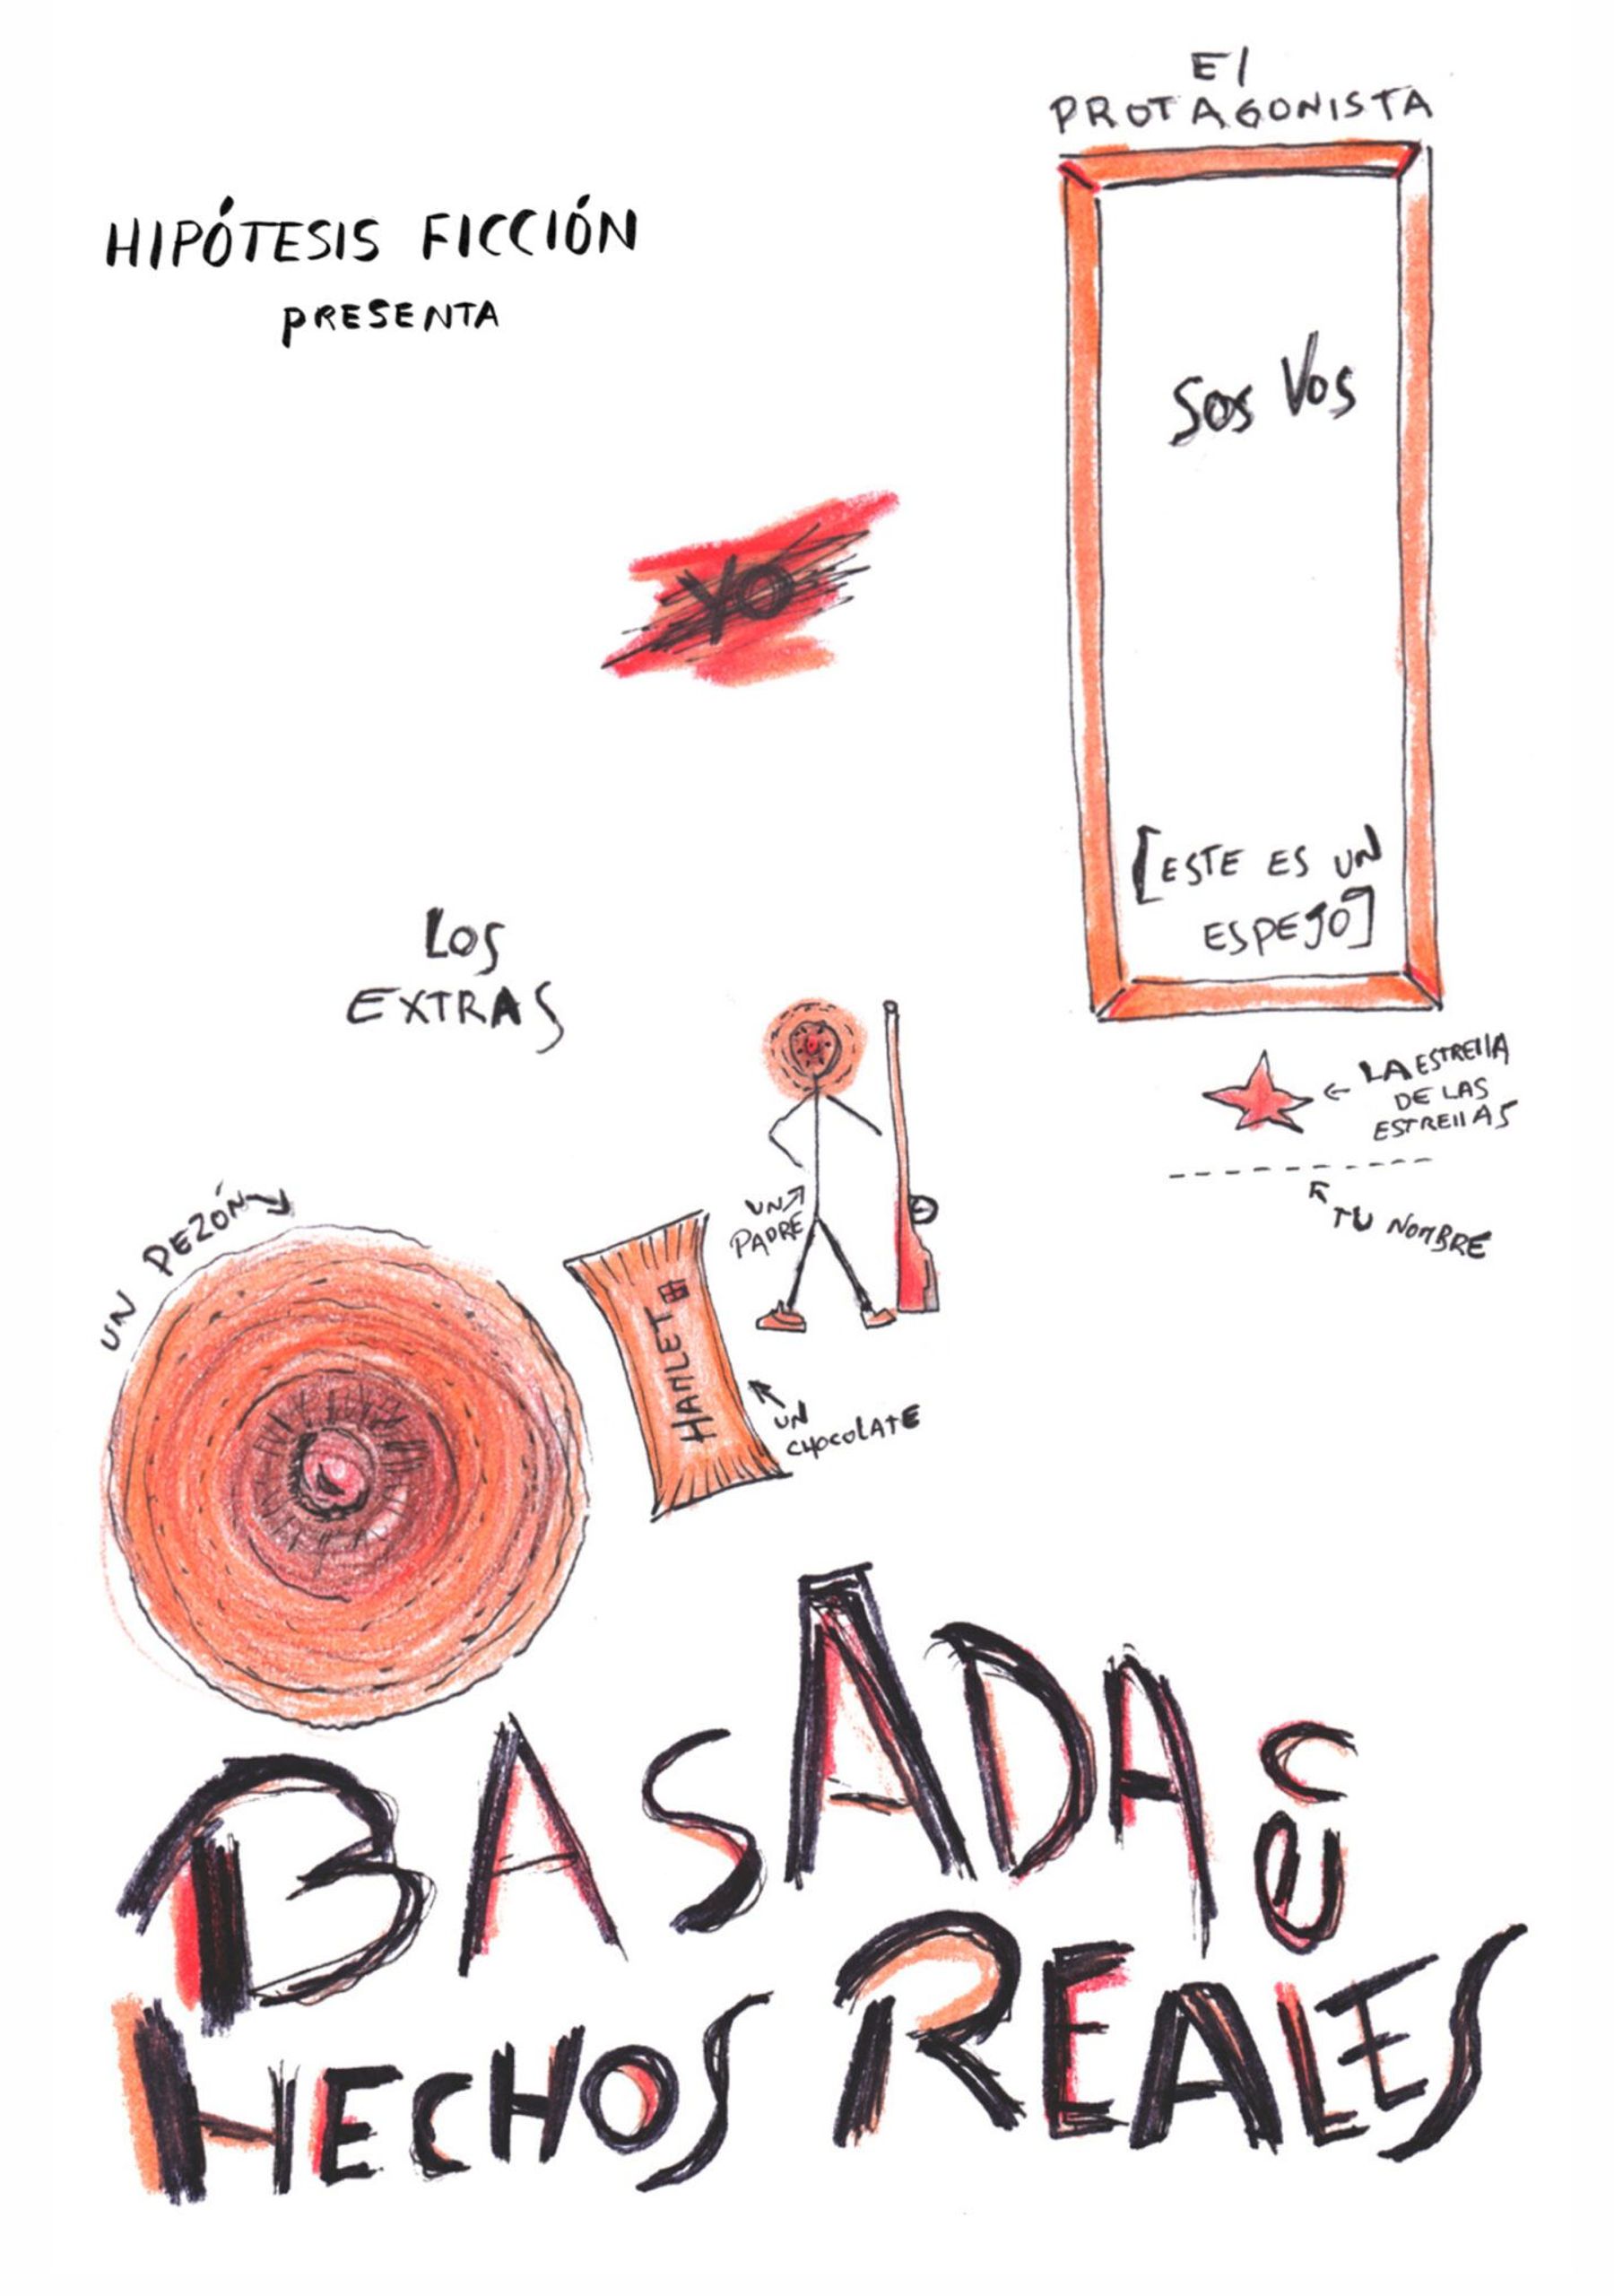 El
PROTAGONISTA
HIPÓTESIS FICCIÓN
PRESENTA
Sos Vos
YO
[ESTE ES UN
ESPEJO]
LOS
EXTRAS
LA ESTREllA
DE LAS
ESTREllAS
TU NOMBRE
UN PEZÓN
UN
PADRE
HAMLET
UN
CHOCOLATE
BASADA en
HECHOS REALES